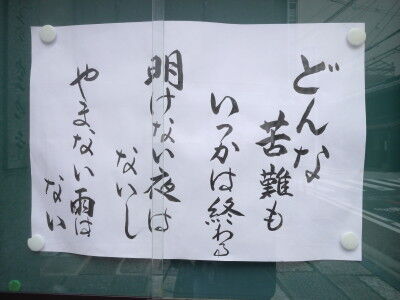 どんな
苦難も
いつかは終わる
明けない夜は
ないし
やまない雨は
ない